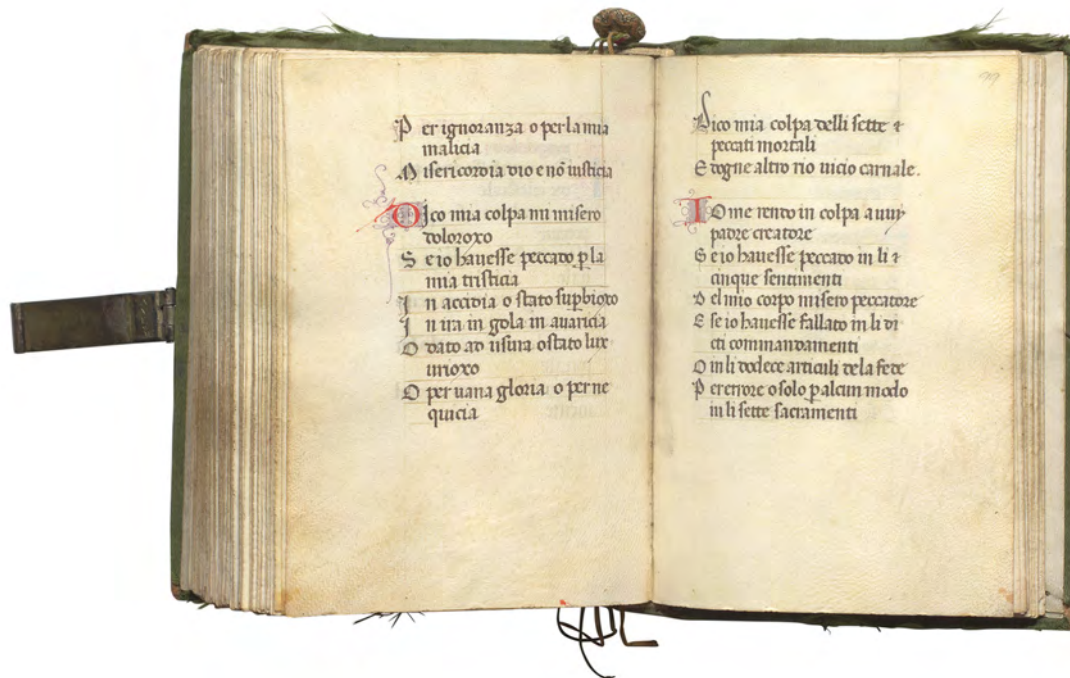 P er ignoranza o per la mia
malicia
M isericordia dio e nō iusticia
D ico mia colpa mi misero
doloroxo
S e io hauesse peccado p̱ la
mia tristicia
I n accidia o stato sup̱bioxo
I n ira in gola in auaricia
O dato ad usura o stato lux
urioxo
O per uana gloria o per ne
quicia
99
Dico mia colpa delli sette ⁊
peccati mortali
E dogne altro rio uicio carnale.
I O me rendo in colpa a uuy
padre creatore
S e io hauesse peccado in li ⁊
cinque sentimenti
D el mio corpo misero peccatore
E se io hauesse fallato in li di
cti commandamenti
O in li dodece articuli de la fede
P er errore o solo p̱ alcum modo
in li sette sacramenti